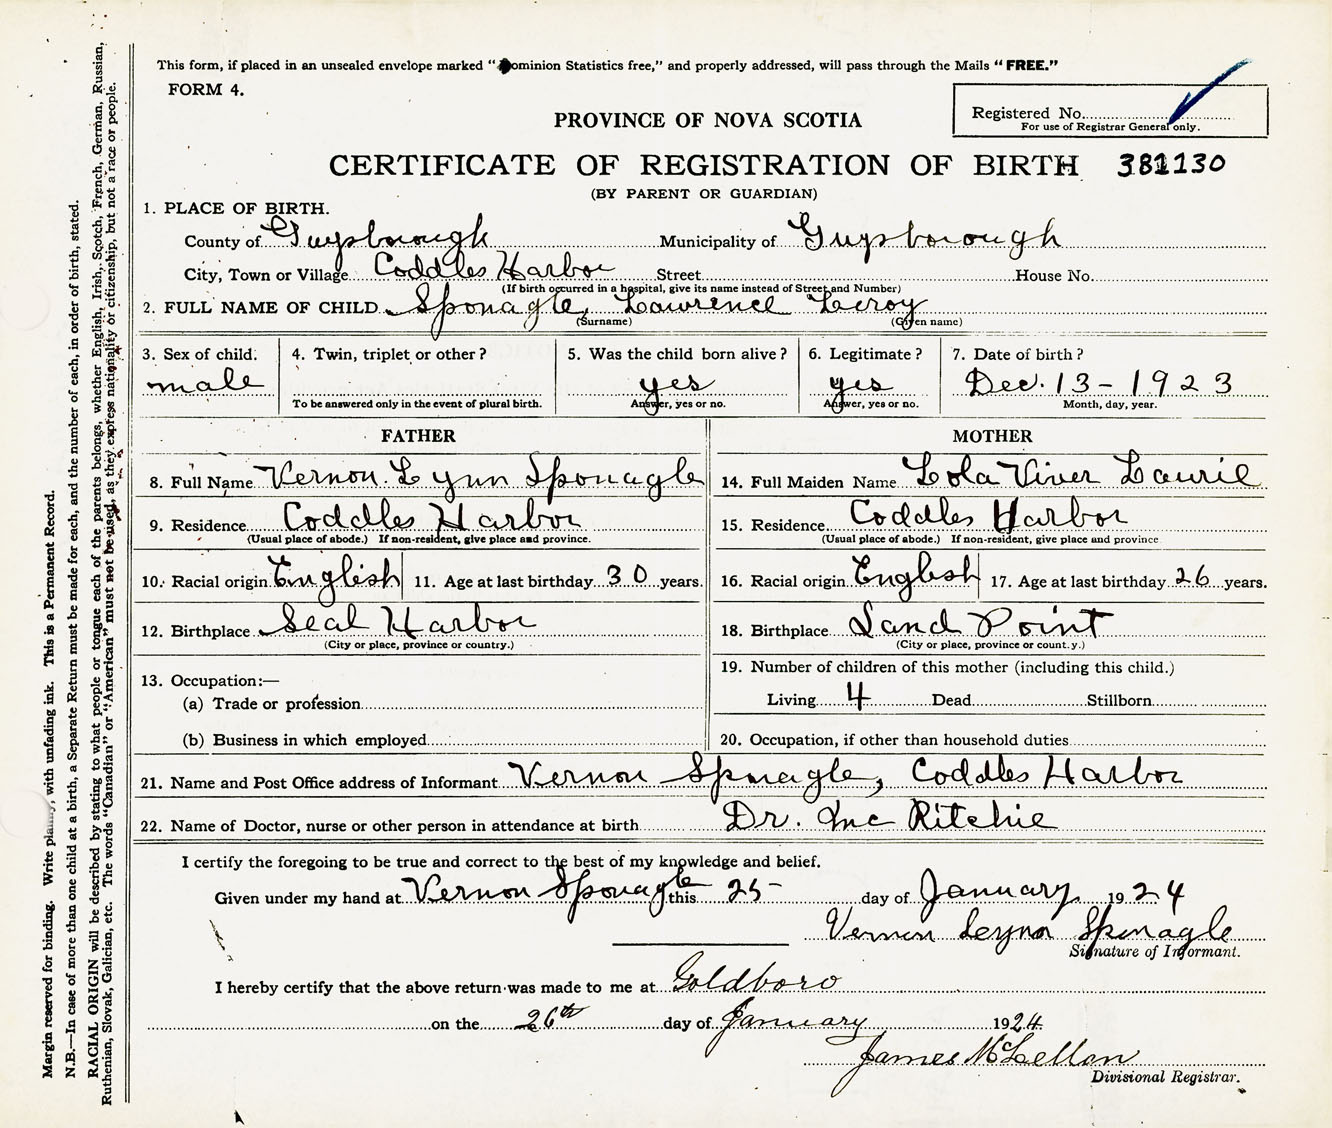 This form, if placed in an unsealed envelope marked "Dominion Statistics free," and properly addressed, will pass through the Mails "FREE."
FORM 4.
Registered No.
For use of Registrar General only.
PROVINCE OF NOVA SCOTIA
CERTIFICATE OF REGISTRATION OF BIRTH 381130
(BY PARENT OR GUARDIAN)
1. PLACE OF BIRTH.
County of Guysborough Municipality of Guysborough
City, Town or Village Coddles Harbor Street House No.
(If birth occurred in a hospital, give its name instead of Street and Number)
2. FULL NAME OF CHILD Sponagle, Lawrence Leroy
(Surname) (Given name)
3. Sex of child. 4. Twin, triplet or other? 5. Was the child born alive? 6. Legitimate? 7. Date of birth?
male yes yes Dec. 13 - 1923
To be answered only in the event of plural birth. Answer, yes or no. Answer, yes or no. Month, day, year.
FATHER MOTHER
8. Full Name Vernon Lynn Sponagle 14. Full Maiden Name Lola Viver Laurie
9. Residence Coddles Harbor 15. Residence Coddles Harbor
(Usual place of abode.) If non-resident, give place and province. (Usual place of abode.) If non-resident, give place and province
10. Racial origin English 11. Age at last birthday 30 years. 16. Racial origin English 17. Age at last birthday 26 years.
12. Birthplace Seal Harbor 18. Birthplace Sand Point
(City or place, province or country.) (City or place, province or country.)
13. Occupation:— 19. Number of children of this mother (including this child.)
(a) Trade or profession Living 4 Dead Stillborn
(b) Business in which employed 20. Occupation, if other than household duties
21. Name and Post Office address of Informant Vernon Sponagle, Coddles Harbor
22. Name of Doctor, nurse or other person in attendance at birth Dr. Mc Ritchie
I certify the foregoing to be true and correct to the best of my knowledge and belief.
Given under my hand at Vernon Sponagle this 25 day of January 1924
Vernon Sponagle
Signature of Informant.
I hereby certify that the above return was made to me at Goldboro
on the 26th day of January 1924
James McLellan
Divisional Registrar.
Margin reserved for binding. Write plainly, with unfading ink. This is a Permanent Record.
N.B.—In case of more than one child at a birth, a Separate Return must be made for each, and the number of each, in order of birth, stated.
RACIAL ORIGIN will be described by stating to what people or tongue each of the parents belongs, whether English, Irish, Scotch, French, German, Russian,
Ruthenian, Slovak, Galician, etc. The words "Canadian" or "American" must not be used, as they express nationality or citizenship, but not a race or people.